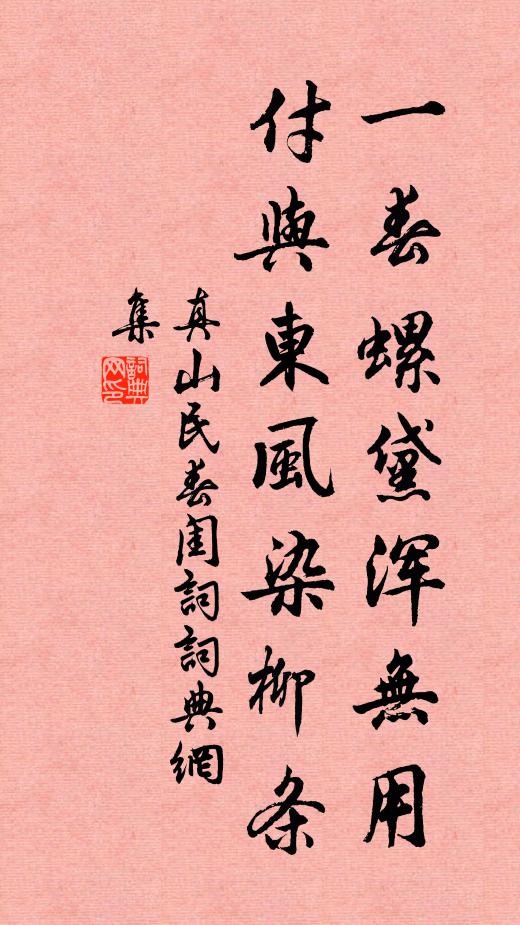 一春螺黛浑無用
付與東風染柳条
真山民春閨詞詞典網
集
詞典
网印